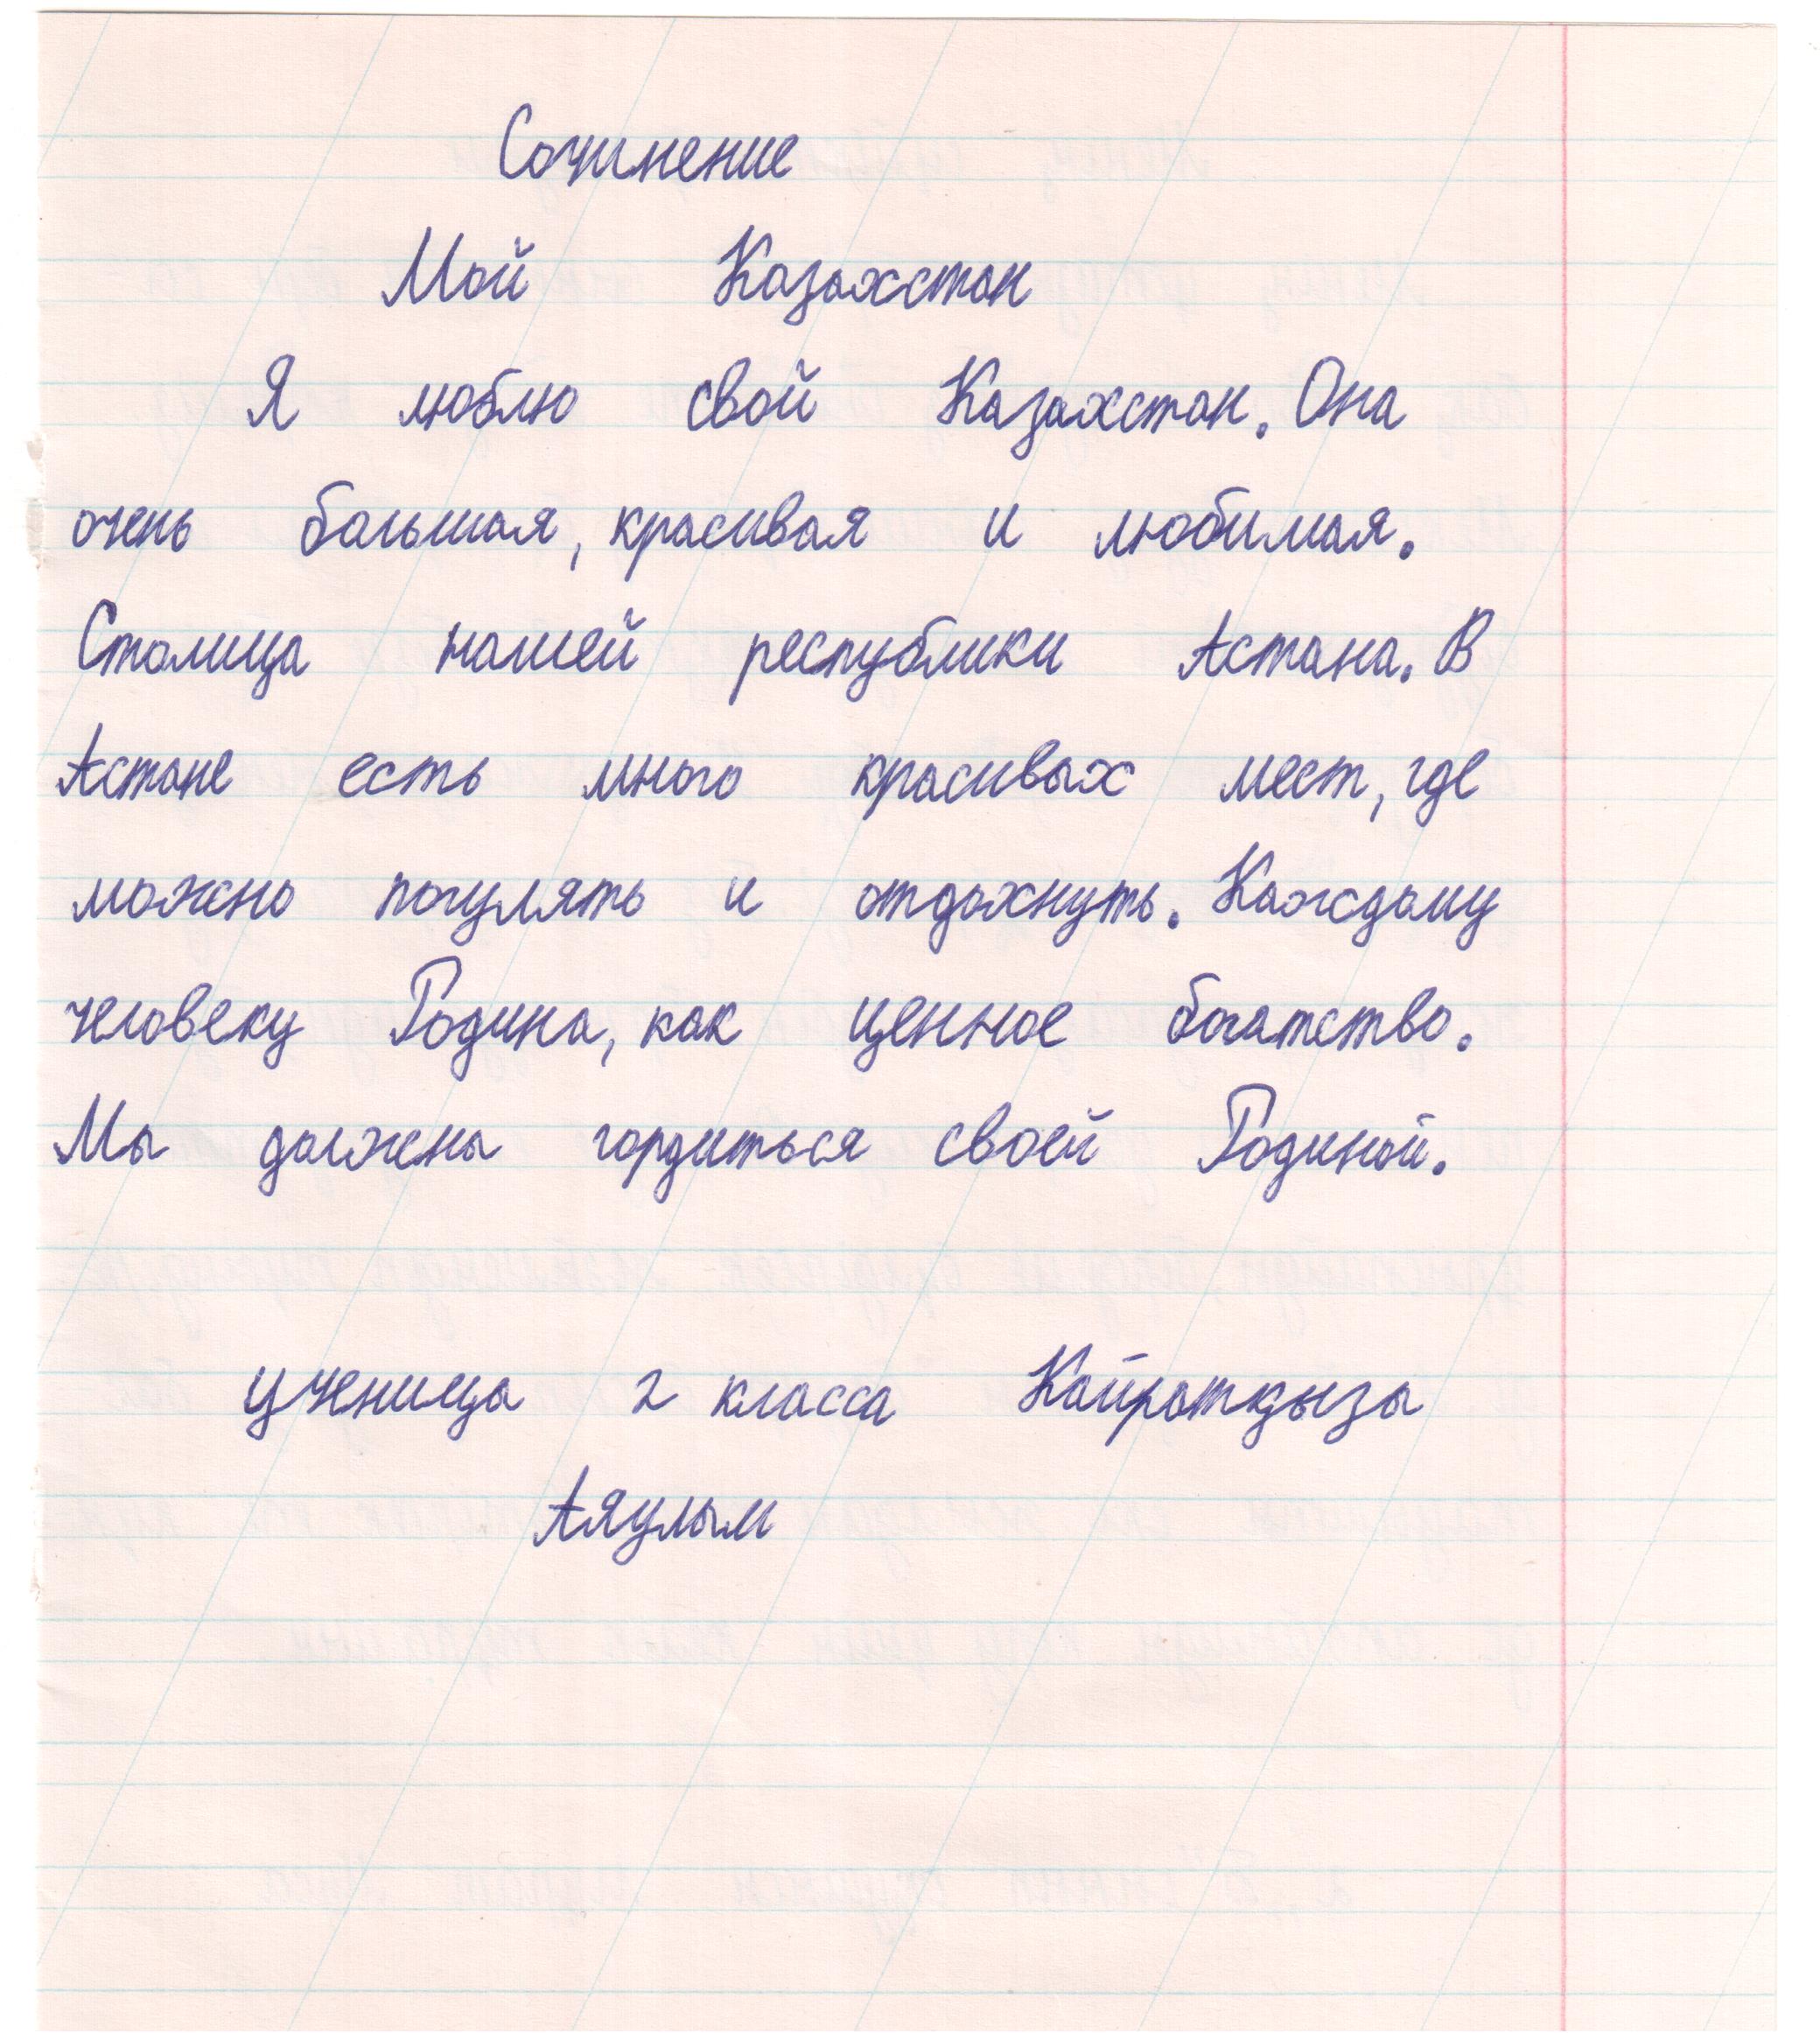 Сочинение
Мой Казахстан
Я люблю свой Казахстан. Она
очень большая, красивая и любимая.
Столица нашей республики Астана. В
Астане есть много красивых мест, где
можно погулять и отдохнуть. Каждому
человеку Родина, как ценное богатство.
Мы должны гордиться своей Родиной.
ученица 2 класса Кайратқызы
Аяулым